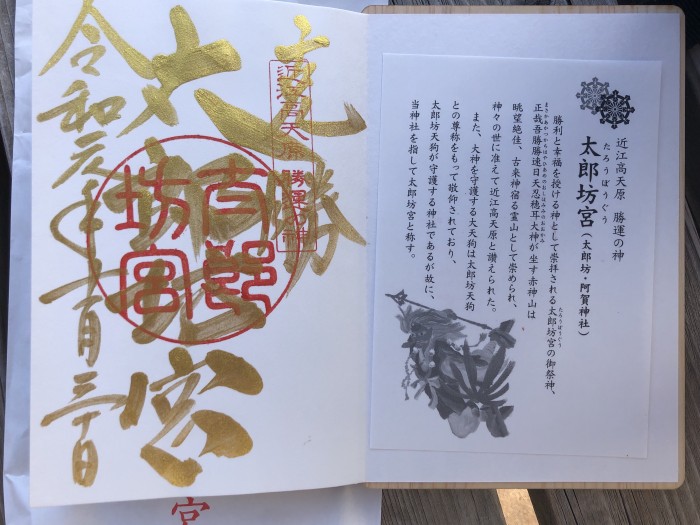 近江高天原 勝運の神
たろうぼうぐう
太郎坊宮(太郎坊・阿賀神社)
たろうぼうぐう
勝利と幸福を授ける神として崇拝される太郎坊宮の御祭神、
正哉吾勝勝速日天忍穂耳大神が坐す赤神山は
眺望絶佳、古来神宿る霊山として崇められ、
神々の世に准えて近江高天原と讃えられた。
また、大神を守護する大天狗は太郎坊天狗
との尊称をもって敬仰されており、
太郎坊天狗が守護する神社であるが故に、
当神社を指して太郎坊宮と称す。
勝
近江高天原 勝運の神
太郎坊宮
太郎坊宮
令和元年十一月三十日
宮